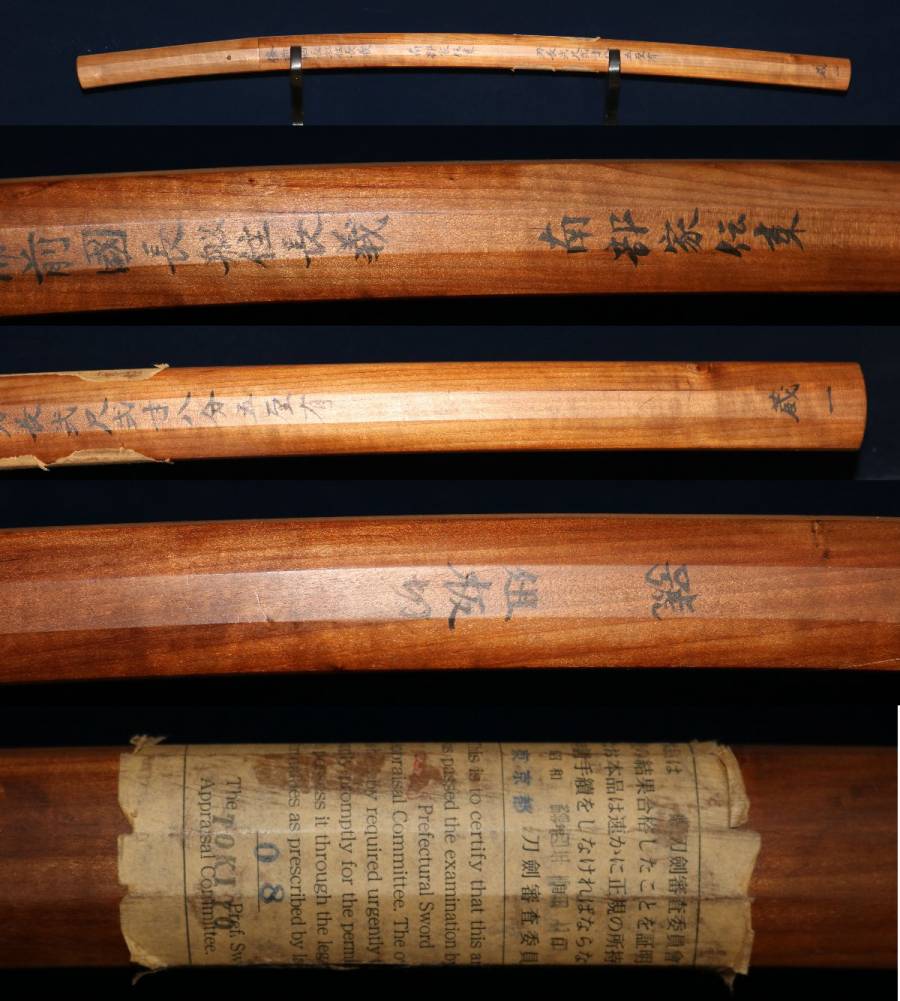 前國長船住長義
南部家伝来
刃長弐尺弐寸八分五厘有
蔵一
號
俎板切
は 刀劍審査委員會
の結果合格したことを証明
お本品は速かに正規の所持
手續をしなければならな
昭和
東京都 刀劍審査委員
This is to certify that this a
passed the examination by
Prefectural Sword
praisal Committee. The o
by required urgently
promptly for the perm
possess it through the leg
as prescribed by l
08
The TOKYO Pref. Sw
Appraisal Committee.